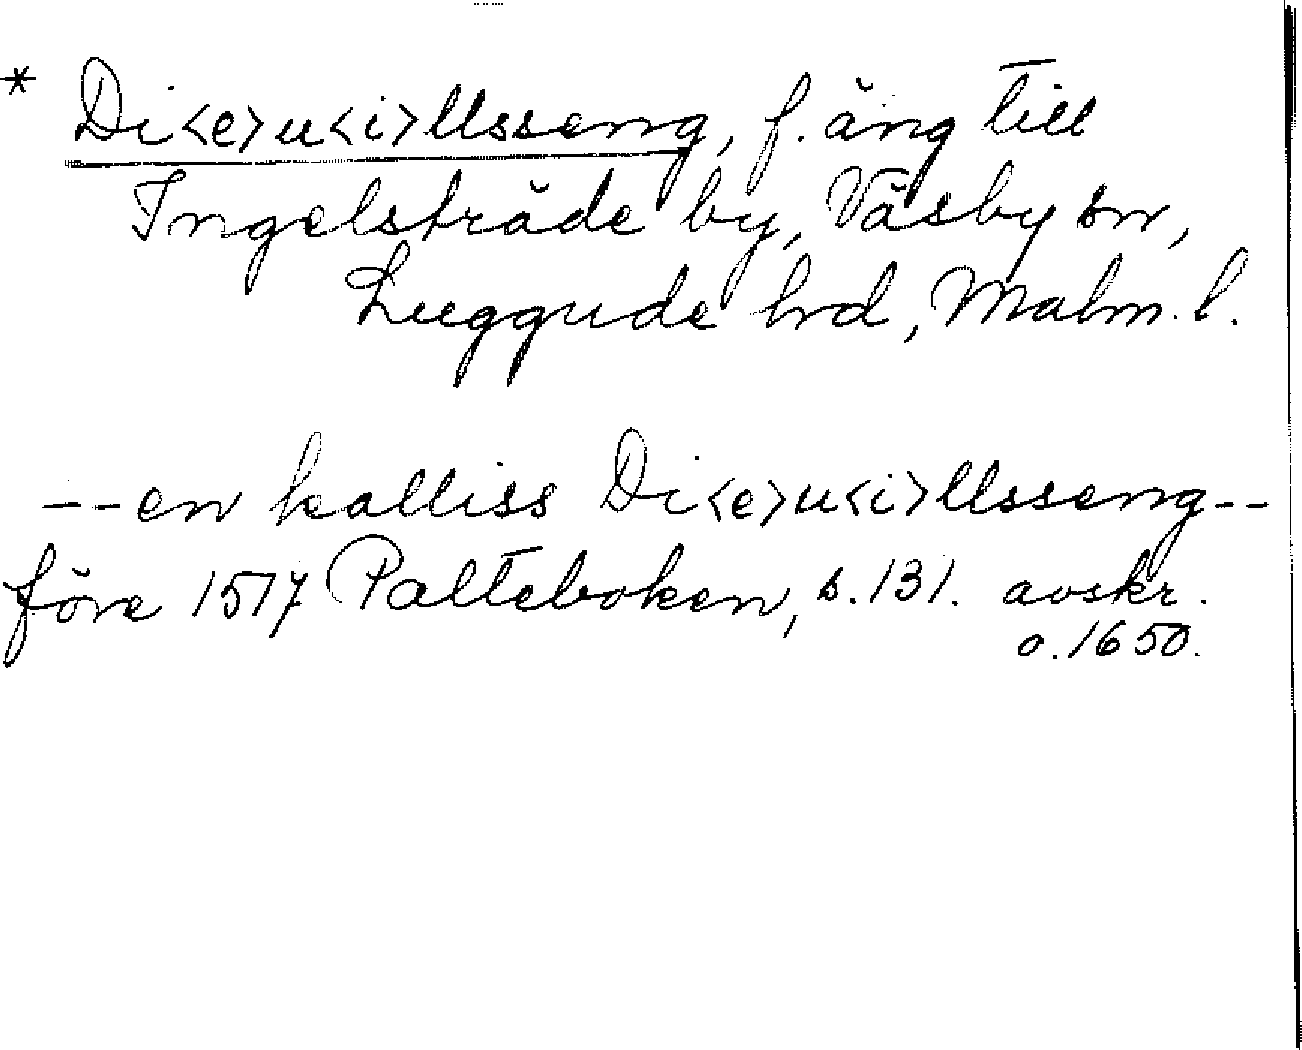 * Di<e>u<i>llsseng, f. äng till
Ingelsträde by, Väsby sn,
Luggude hrd, Malm. l.
--en kalliss Di<e>u<i>llsseng--
före 1517 Palteboken, s. 131. avskr.
o. 1650.